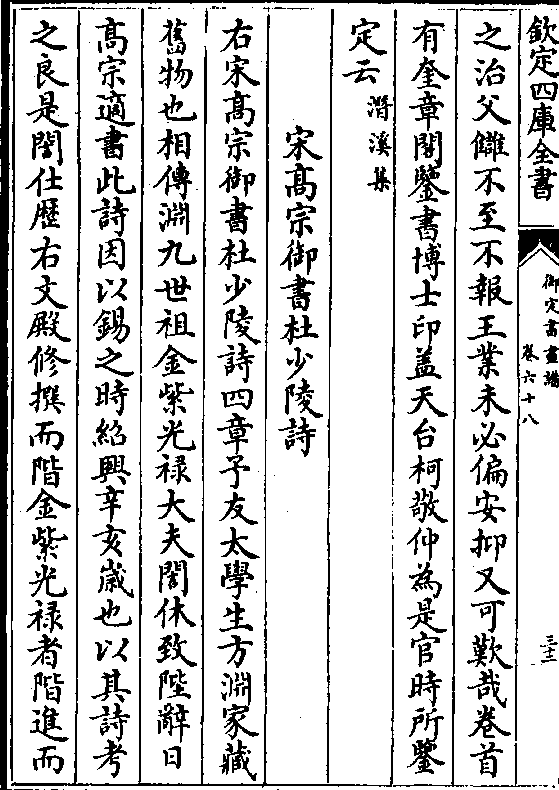 欽定四庫全書
御定書畫譜
卷六十八
三十二
之治父讎不至不報王業未必偏安抑又可歎哉卷首
有奎章閣鑒書博士印盖天台柯敬仲為是官時所鑒
定云 潛溪集
宋髙宗御書杜少陵詩
右宋髙宗御書杜少陵詩四章予友太學生方淵家藏
舊物也相傳淵九世祖金紫光禄大夫闓休致陛辭日
髙宗適書此詩因以錫之時紹興辛亥嵗也以其詩考
之良是闓仕歴右文殿修撰而階金紫光禄者階進而